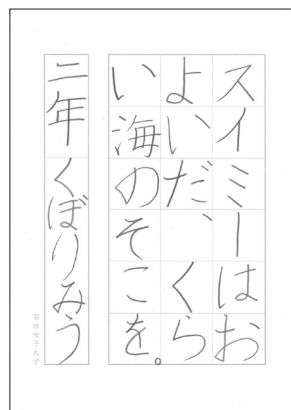 スイミーはお
よいだ、くら
い海のそこを。
二年 くぼりみう
安田女子大学